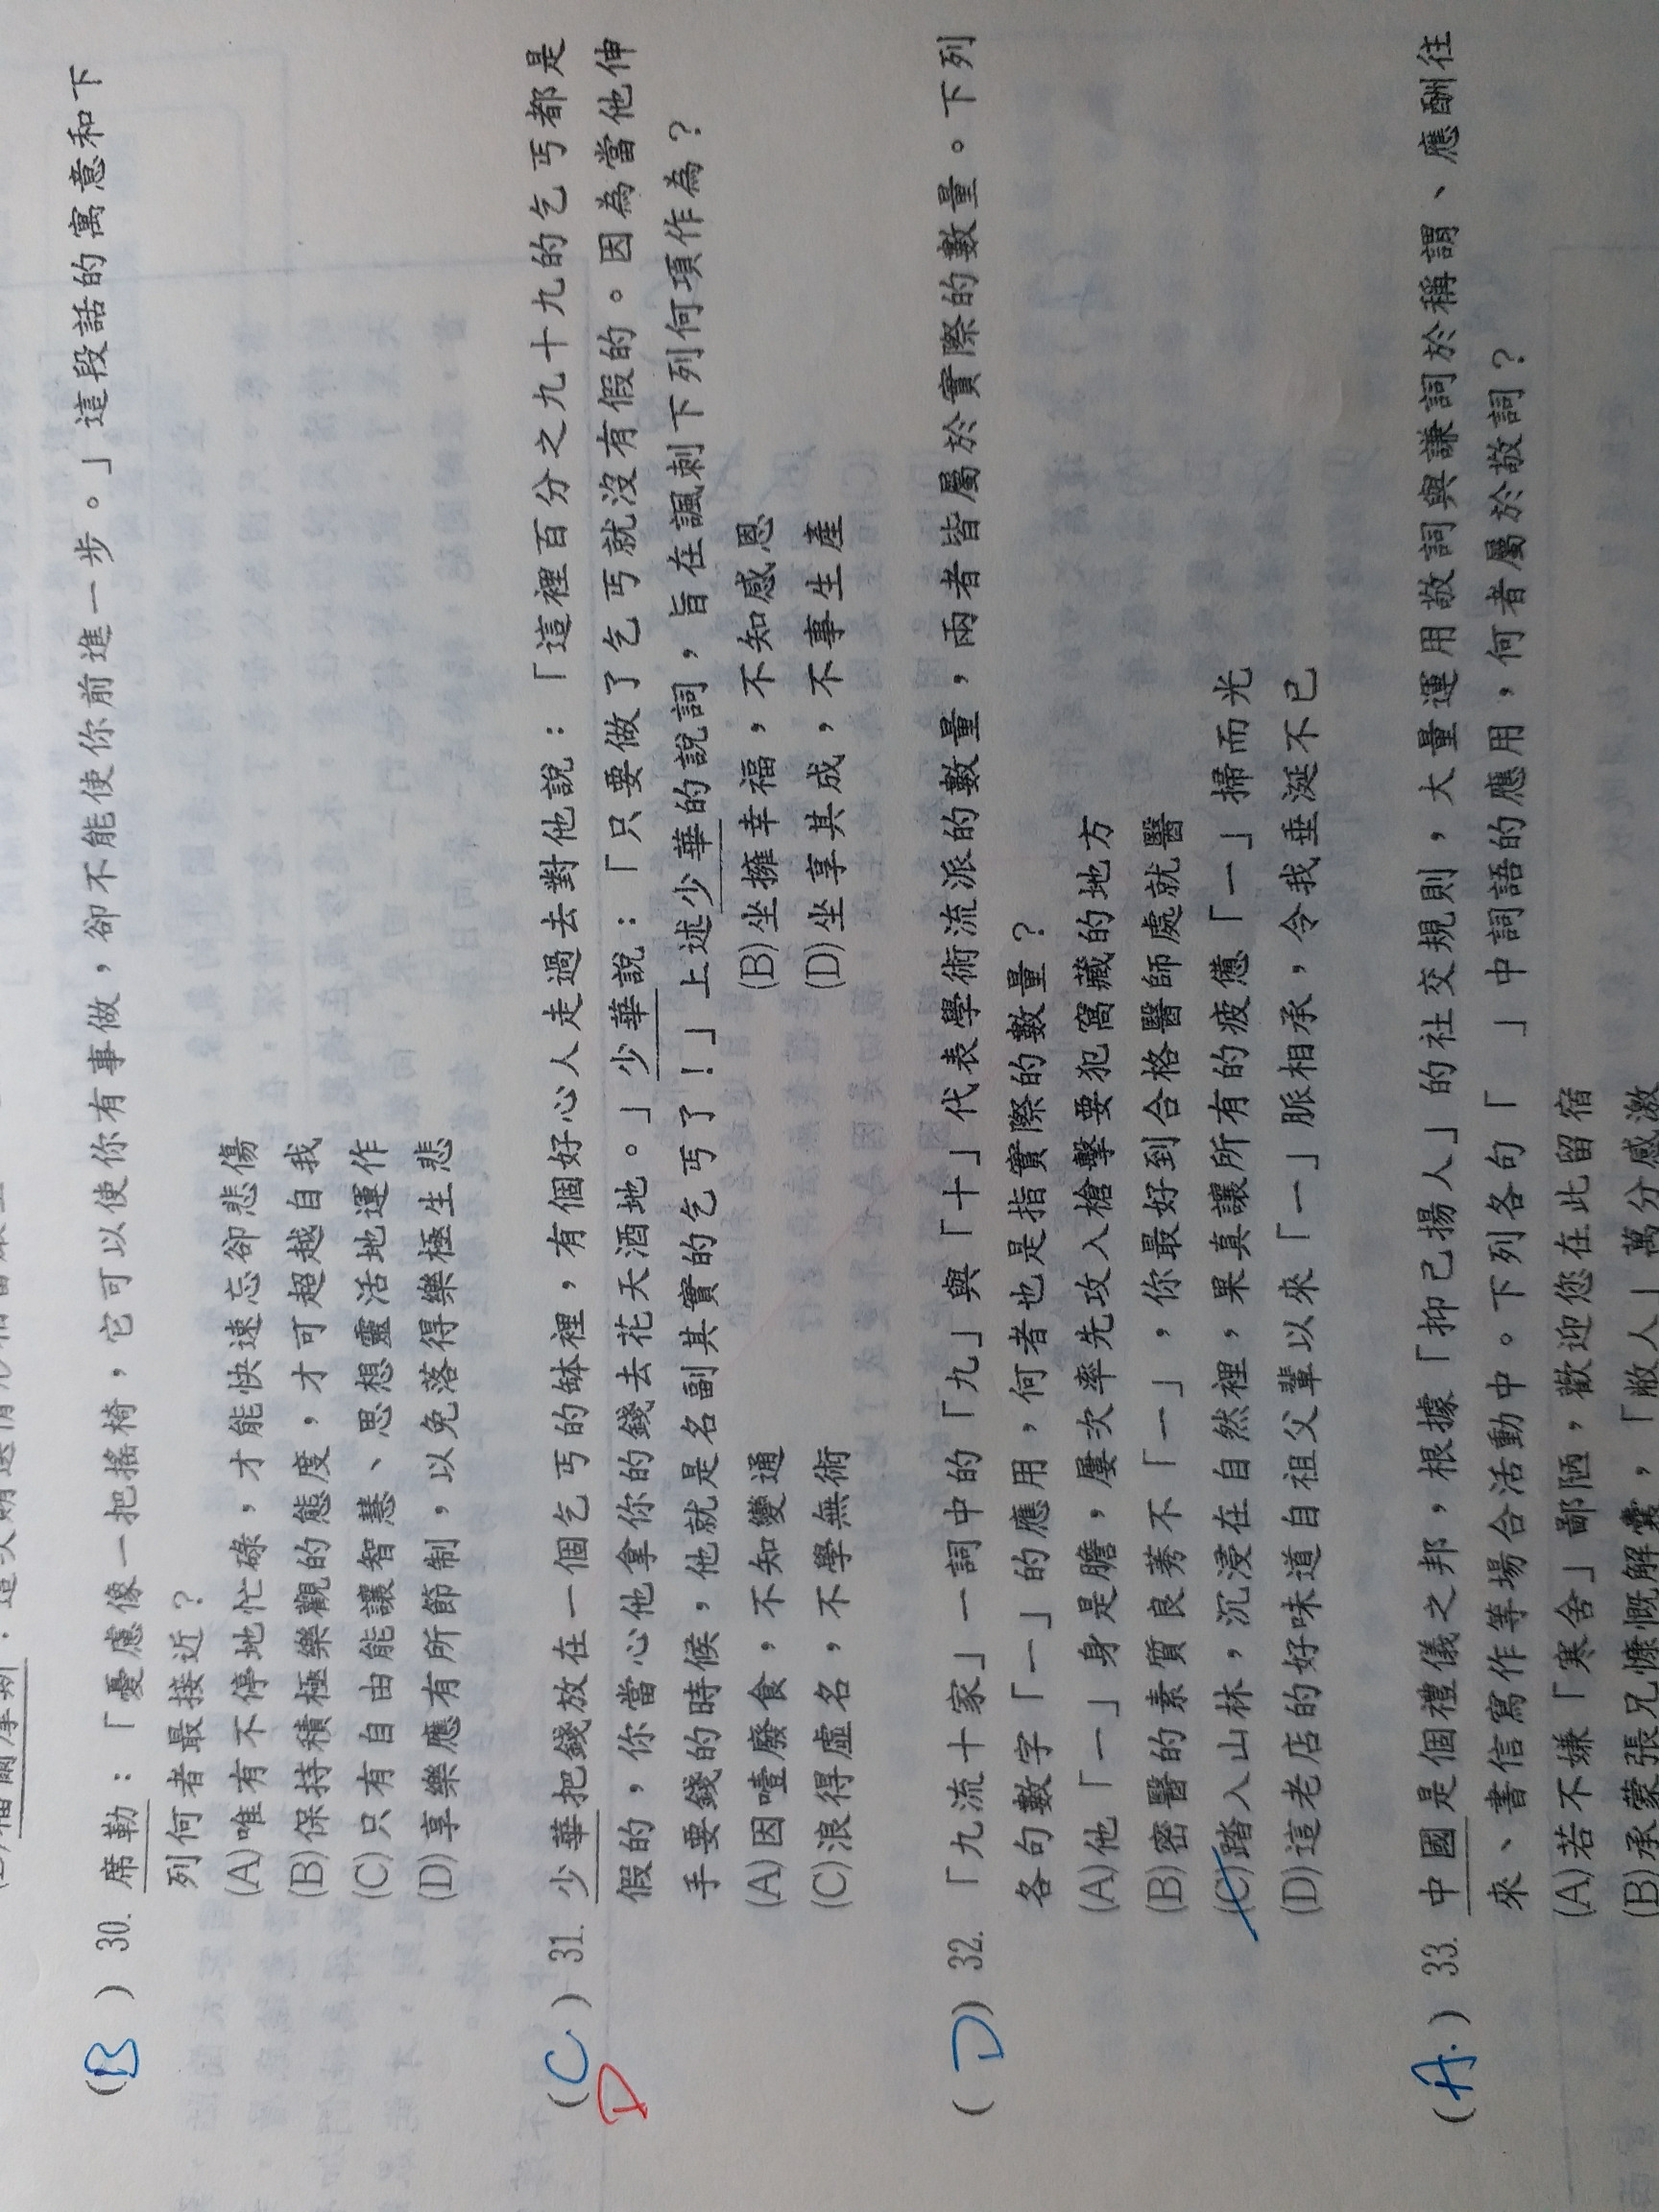 (B) 30. 席勒：「憂慮像一把搖椅，它可以使你有事做，卻不能使你前進一步。」這段話的寓意和下
列何者最接近？
(A)唯有不停地忙碌，才能快速忘卻悲傷
(B)保持積極樂觀的態度，才可超越自我
(C)只有自由能讓智慧、思想靈活地運作
(D)享樂應有所節制，以免落得樂極生悲
(C) 31. 少華把錢放在一個乞丐的缽裡，有個好心人走過去對他說：「這裡百分之九十九的乞丐都是
D
假的，你當心他拿你的錢去花天酒地。」少華說：「只要做了乞丐就沒有假的。因為當他伸
手要錢的時候，他就是名副其實的乞丐了！」上述少華的說詞，旨在諷刺下列何項作為？
(A)因噎廢食，不知變通 (B)坐擁幸福，不知感恩
(C)浪得虛名，不學無術 (D)坐享其成，不事生產
(D) 32. 「九流十家」一詞中的「九」與「十」代表學術流派的數量，兩者皆屬於實際的數量。下列
各句數字「一」的應用，何者也是指實際的數量？
(A)他「一」身是膽，屢次率先攻入槍擊要犯窩藏的地方
(B)密醫的素質良莠不「一」，你最好到合格醫師處就醫
(C)踏入山林，沉浸在自然裡，果真讓所有的疲憊「一」掃而光
(D)這老店的好味道自祖父輩以來「一」脈相承，令我垂涎不已
(A.) 33. 中國是個禮儀之邦，根據「抑己揚人」的社交規則，大量運用敬詞與謙詞於稱謂、應酬往
來、書信寫作等場合活動中。下列各句「 」中詞語的應用，何者屬於敬詞？
(A)若不嫌「寒舍」鄙陋，歡迎您在此留宿
(B)承蒙張兄慷慨解囊，「敝人」萬分感激